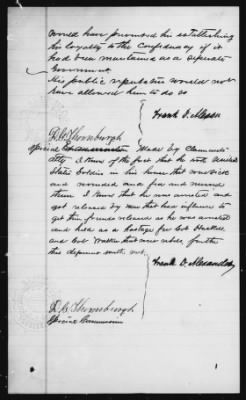 would have prevented his establishing
his loyalty to the Confederacy if it
had been maintained as a seperate
Government
His public reputation would not
have allowed him to do so
Frank D. Alexan
D. C. Thornburgh
Special Commissioner Made by Claimants
Atty I know of the fact that he with United
States Soldiers in his house that were sick
and wounded and fed and nursed
them I know that he was arrested and
got released by men that had influence to
get their friends released as he was arrested
and held as a hostage for Col
and Col that were rebels further
this deponent saith not.
Frank D. Alexander
D. C. Thornburgh
Special Commissioner